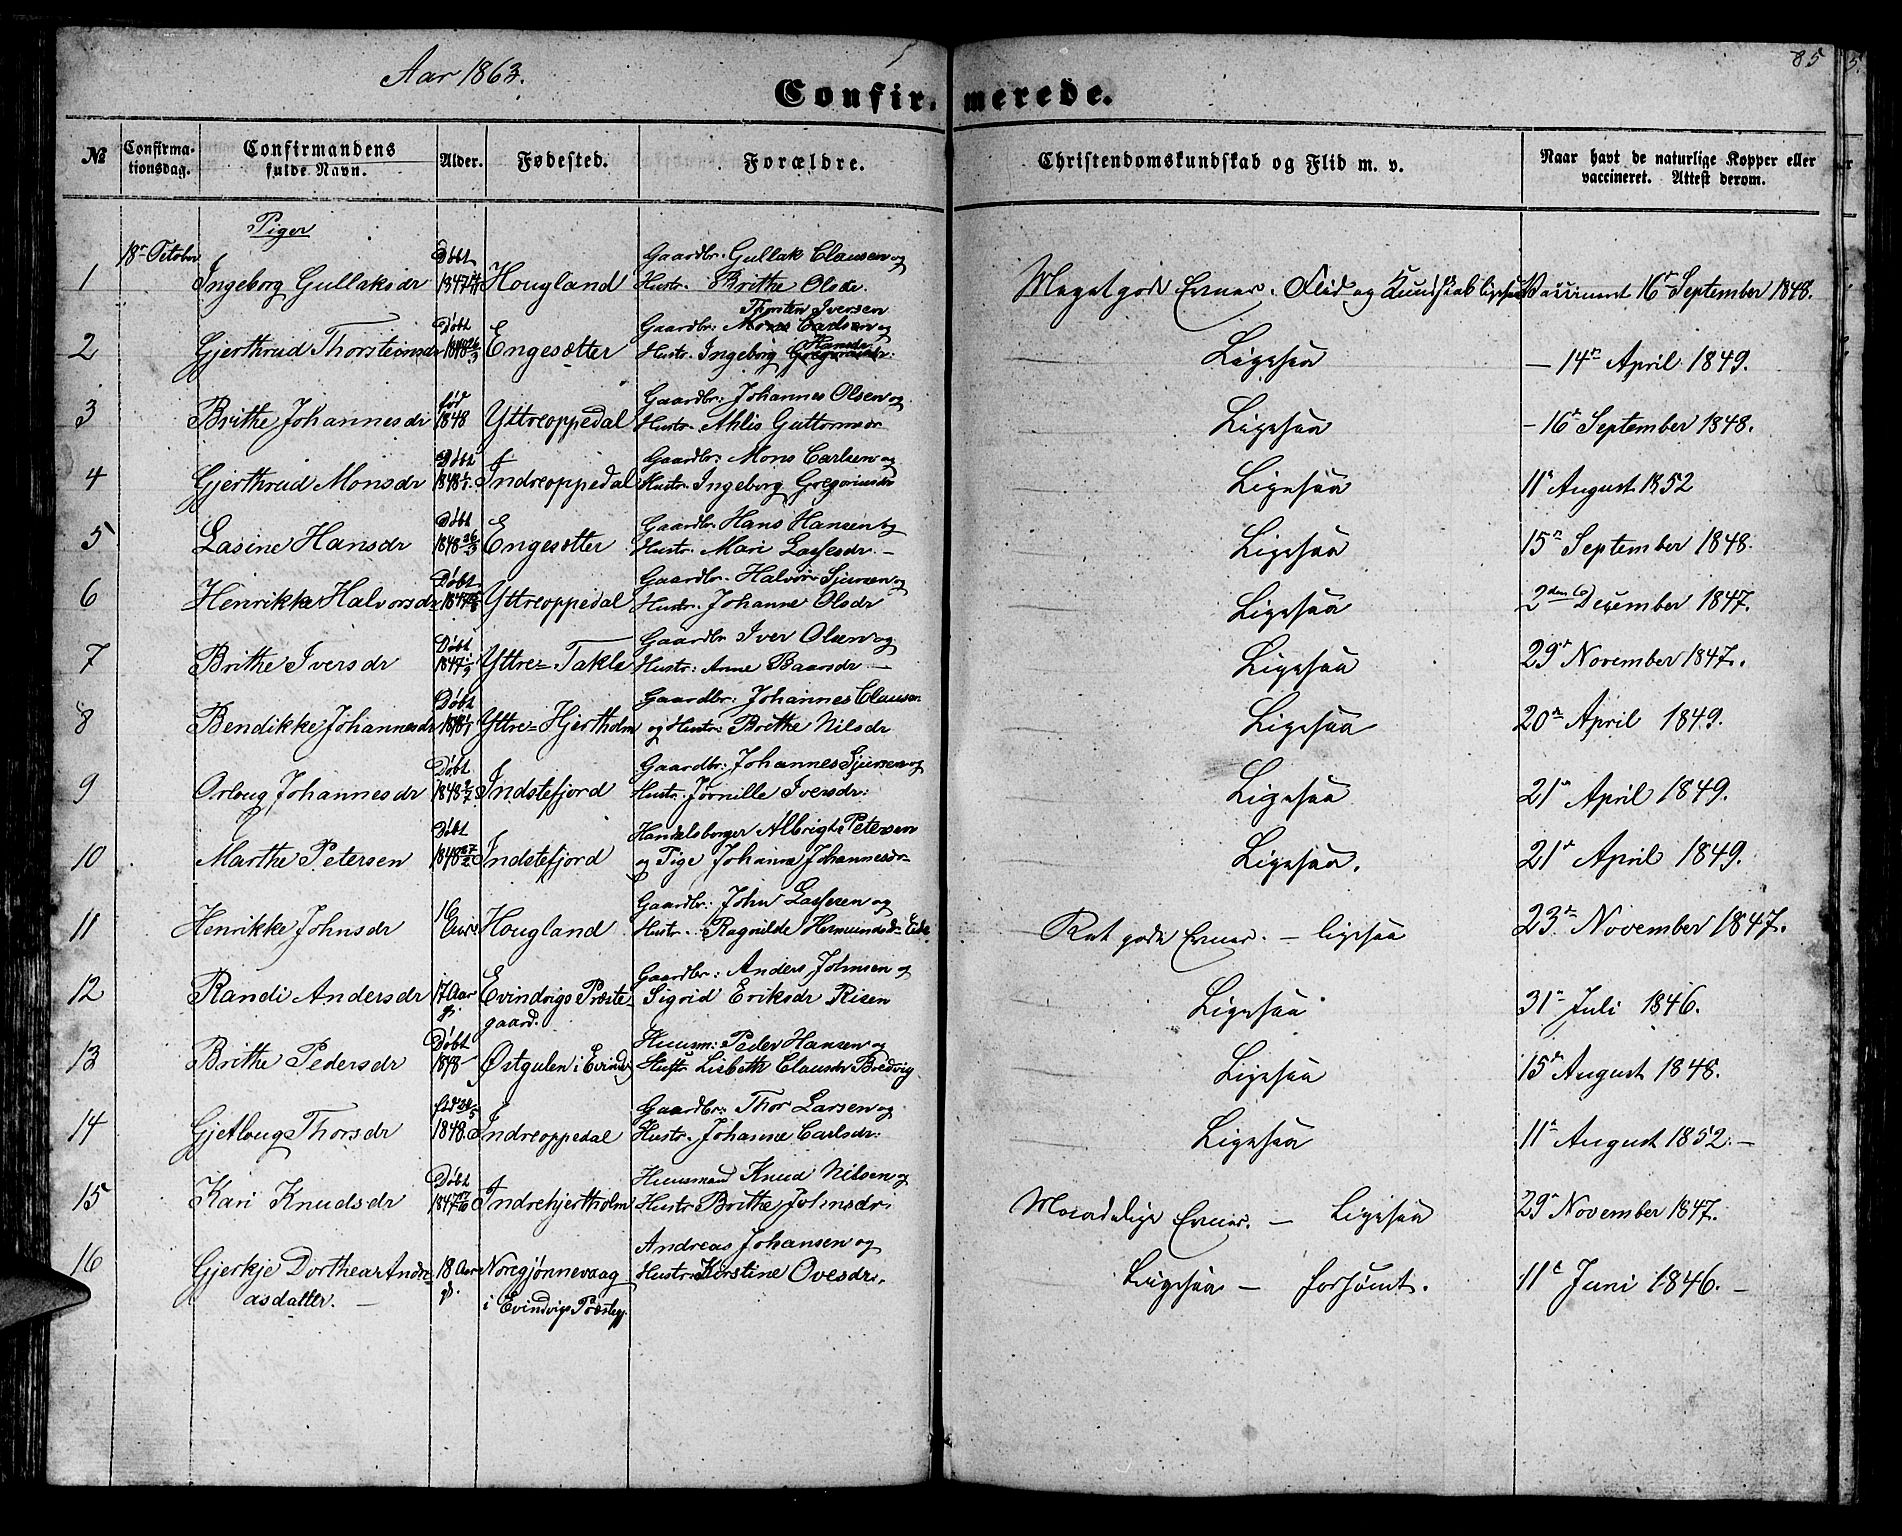 Aar 1863.
85
Confirmerede.
№ Confirmationsdag. Confirmandens fulde Navn. Alder. Fødested. Forældre. Christendomskundskab og Flid m. v. Naar havt de naturlige Kopper eller vaccineret. Attest derom.
Piger
18de October Døbt Gaardbr. Gullak Clausen og
1 Ingeborg Gullaksdr 1847 Hougland Hustr. Brithe Olsdr. Meget gode Evner. Flid og Kundskab ligesaa Vaccineret 16de September 1848.
Thorsten Iversen
Døbt Gaardbr: Mons Carlsen og
Hansdr
2 Gjerthrud Thorsteinsdr 1848 26/3 Engesætter Hustr. Ingeborg Gregoriusdr: Ligesaa — 14de April 1849.
fød Gaardbr: Johannes Olsen og
3 Brithe Johannesdr 1848 Yttreoppedal Hustr. Ahlis Guttormsdr Ligesaa — 16de September 1848.
Døbt Gaardbr: Mons Carlsen og
4 Gjerthrud Monsdr 1848 Indreoppedal Hustr. Ingeborg Gregoriusdr Ligesaa 11te August 1852
Døbt Gaardbr. Hans Hansen og
5 Lasine Hansdr 1848 26/3 Engesætter Hustr. Mari Lassesdr. — Ligesaa 15de September 1848.
Døbt Gaardbr. Halvor Sjursen og
6 Henrikke Halvorsdr 1847 Yttreoppedal Hustr. Johanne Olsdr Ligesaa 2den December 1847.
Døbt Gaardbr Iver Olsen og
7 Brithe Iversdr 1847 Yttre=Takle Hustr: Anne Baarsdr — Ligesaa 29de November 1847.
Døbt Gaardbr: Johannes Clausen
8 Bendikke Johannesdr 1848 Yttre=Hjertholm og Hustr: Brithe Nilsdr Ligesaa 20de April 1849.
Døbt Gaardbr: Johannes Sjursen og
9 Orloug Johannesdr 1848 2/7 Indstefjord Hustr. Jørnille Iversdr: Ligesaa 21de April 1849.
Døbt Handelsborger Albrigt Petersen
10 Marthe Petersen 1848 27/2 Indstefjord og Pige Johanna Johannesdr Ligesaa. 21de April 1849.
16 Gaardbr: John Lassesen og
11 Henrikke Johnsdr Hougland Hustr. Ragnilde Hermundsd= Eide Ret gode Evner. — ligesaa 23de November 1847.
Gaardbr: Anders Johnsen og
12 Randi Andersdr 17 Aar Evindvigs Præste= Sigrid Eriksdr Risen Ligesaa 31te Juli 1846.
gl. gaard.
Døbt Huusm: Peder Hansen og
13 Brithe Pedersdr 1848 Østgulen i Evindv Hustr Lisbeth Clausdr Bredvig Ligesaa 15de August 1848.
fød Gaardbr: Thor Larsen og
14 Gjetloug Thorsdr 1848. Indreoppedal Hustr. Johanne Carlsdr: Ligesaa 11te August 1852. —
Døbt Huusmand Knud Nilsen og
15 Kari Knudsdr 1847 Indrehjertholm Hustr Brithe Johnsdr: Maadelige Evner. — Ligesaa 29de November 1847.
Andreas Johansen og
16 Gjerkje Dorthea Andre 18 Aar Noregjønnevaag Hustr: Kirstine Ovesdr. Ligesaa — forsømt. 11te Juni 1846. —
asdatter. — gl. i Evindvigs Præsteg